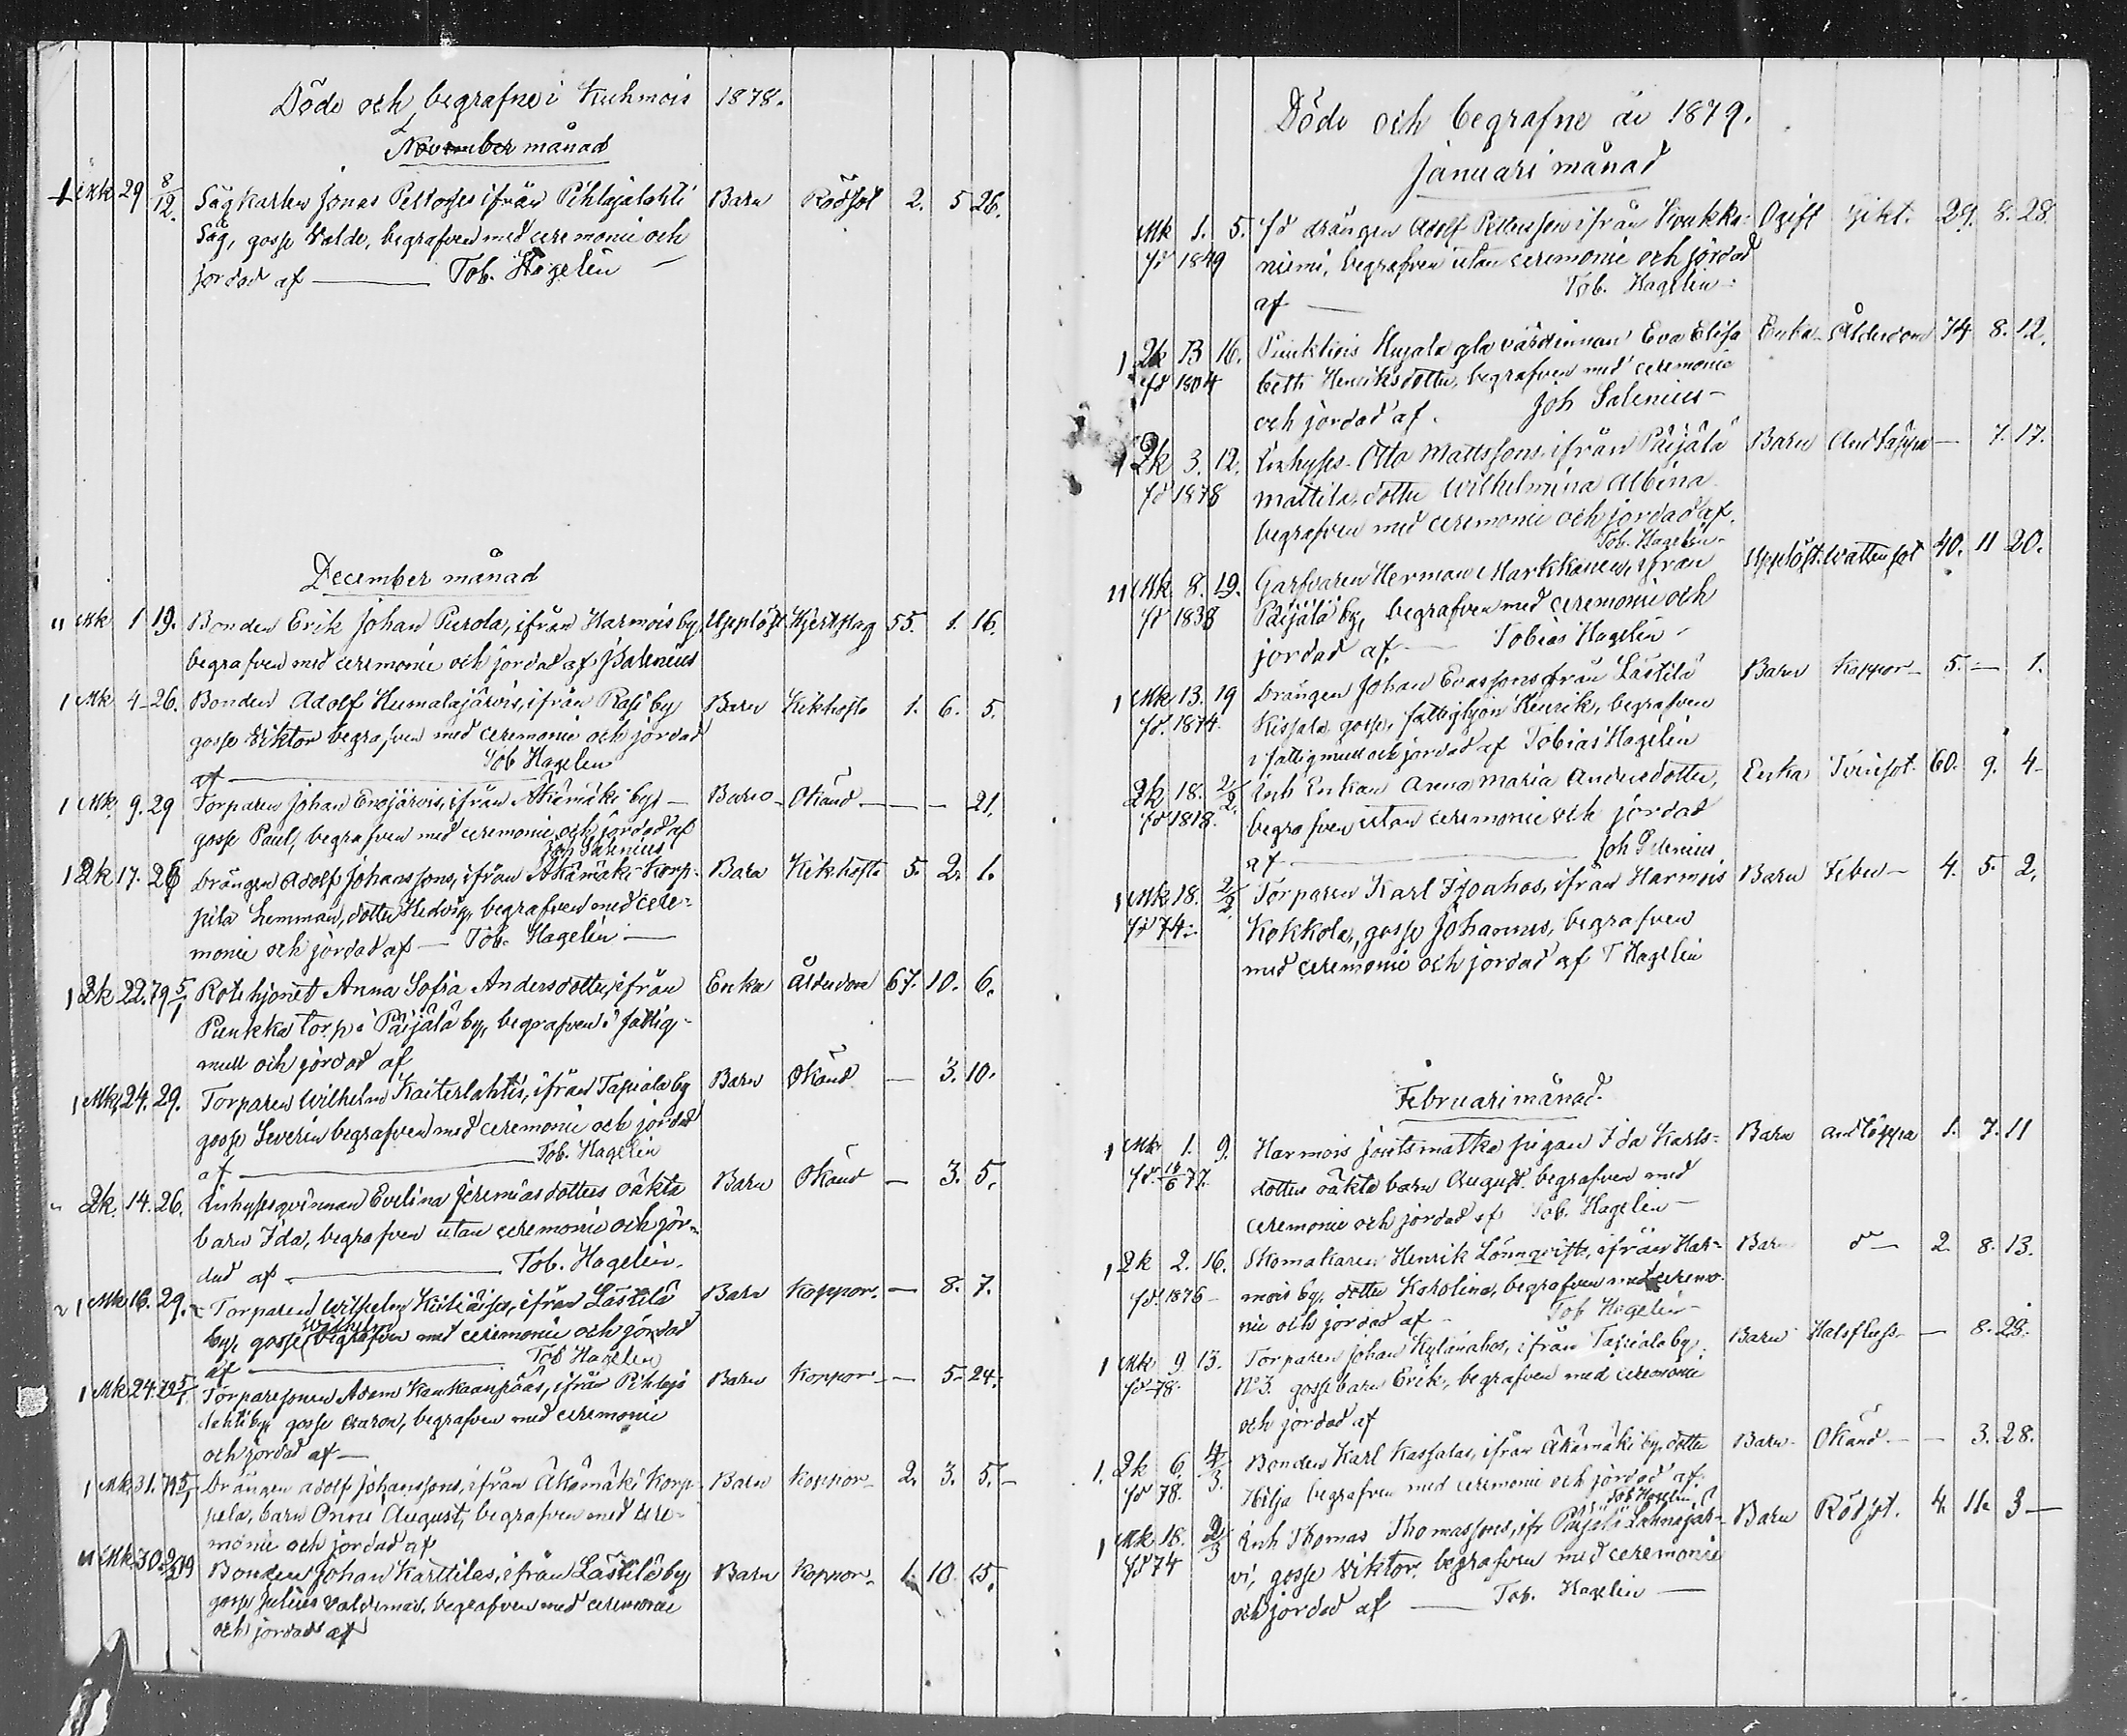 Döde och begrafne i Kuhmois 1878.
November månad
1 Mk 29 8/12. Sågkarlen Jonas Pettossons ifrån Pihlajalahti Barn Rödsot 2. 5 26.
Såg, gosse Valde, begrafven med ceremonie och
jordad af — Tob. Hagelin —
December månad
" Mk 1 19. Bonden Erik Johan Purola, ifrån Harmois by, Upplöst Hjertslag 55. 1. 16.
begrafven med ceremonie och jordad af J Salenius
1 Mk 4 - 26. Bonden Adolf Humalajärvis, ifrån Rasi by Barn Kikhosta 1. 6. 5.
gosse Viktor begrafven med ceremonie och jordad
af — Tob Hagelin
1 Mk. 9. 29 Torparen Johan Enojärvis, ifrån Äkämäki by — Barn - Okänd — — 21.
gosse Paul, begrafven med ceremonie och jordad af
Joh Salenius
1 Qk 17. 26 Drängen Adolf Johanssons, ifrån Äkämäki Korp- Barn Kikhosta 5. 2. 1.
pila Lemman, dotter Hedvig, begrafven med cere-
monie och jordad af — Tob. Hagelin —
1 Qk 22. 79 5/1 Rotehjonet Anna Sofia Andersdotter, ifrån Enka Ålderdom 67. 10. 6.
Punkka torp i Päijälä by, begrafven i fattig-
mull och jordad af
1 Mk 24. 29. Torparen Wilhelm Kaiterlahtis, ifrån Tapiala by Barn Okänd — 3. 10.
gosse Severin begrafven med ceremonie och jordad
af — Tob. Hagelin
" Qk. 14. 26. Inhysesqvinnan Evelina Jeremiasdotters oäkta Barn Okänd — 3. 5.
barn Ida, begrafven utan ceremonie och jor-
dad af — Tob. Hagelin.
1 Mk 16. 29. Torparen Wilhelm Kiiliäises, ifrån Lästilä Barn Koppor. — 8. 7.
by, gosse Wilhelm begrafven med ceremonie och jordad
af — Tob Hagelin
1 Mk 24. 79 5/1. Torparesonen Adam Kankaanpääs, ifrån Pihlaja Barn Koppor — 5 - 24.
lahti by, gosse Aaron, begrafven med ceremonie
och jordad af —
1 Mk 31. 79 5/1 Drängen Adolf Johanssons, ifrån Äkämäki Korp- Barn Koppor — 2. 3. 5. -
pela, barn Onni August, begrafven med cere-
monie och jordad af
" Mk 30 79 Bonden Johan Karttilas, ifrån Lästilä by Barn Koppor. 1. 10. 15.
gosse Julius Valdemar, begrafven med ceremonie
och jordad af
Döde och begrafne år 1879.
Januari månad
Mk 1. 5. fd drängen Adolf Pettersson ifrån Kvukka- Ogift gikt. 29. 8. 28.
fd 1849 niemi, begrafven utan ceremonie och jordad
af — Tob. Hagelin -
1 Qk 13 16. Puukkois Hujala gla värdinnan Eva Elisa Enka Ålderdom 74 8. 12.
fd 1804 beth Henriksdotter, begrafven med ceremonie
och jordad af. Joh Salenius -
1 Qk 3. 12. Inhyses Otto Mattssons ifrån Päijälä Barn Andtäppa — 7. 17.
fd 1878 Mattila, dotter Wilhelmina Albina
begrafven med ceremonie och jordad af.
Tob. Hagelin -
11 Mk 8. 19. Garfvaren Herman Markkanen, ifrån Upplöst. Wattensot 40. 11 20.
fd 1838 Päijälä by, begrafven med ceremonie och
jordad af. — Tobias Hagelin -
1 Mk 13. 19 Drängen Johan Evassons från Lästilä Barn Koppor - 5. — 1.
fd. 1874. Kissala, gosse, fattighjon Henrik, begrafven
i fattigmull och jordad af Tobias Hagelin
Qk 18. 2/2. Inh Enkan Anna Maria Andersdotter, Enka Tvinsot. 60. 9. 4 -
fd 1818. begrafven utan ceremonie och jordad
af — Joh Salenius
1 Mk 18. 2/2. Torparen Karl Isoahos, ifrån Harmois Barn Feber - 4. 5. 2.
fd 74. Kokkola, gosse Johannes, begrafven
med ceremonie och jordad af T Hagelin
Februari månad.
1 Mk 1. 9. Harmois Joutsmatka pigan Ida Karls- Barn andtäppa 1. 7. 11
fd. 18/6 77. dotters oäkta barn August begrafven med
ceremonie och jordad af Tob. Hagelin -
1 Qk 2. 16. Skomakaren Henrik Lönnqvists, ifrån Har- Barn do — 2. 8. 13.
fd. 1876 - mois by, dotter Karolina, begrafven med ceremo-
nie och jordad af - Tob Hagelin -
1 Mk 9. 13. Torparen Johan Kylänahos, ifrån Tapiala by. Barn Halsfluss — 8. 28.
fd -78. N:o 3. gossebarn Erik, begrafven med ceremonie
och jordad af
1. Qk 6. 4/3. Bonden Karl Kassalas, ifrån Äkämäki by, dotter Barn Okänd. — 3. 28.
fd 78. Hilja begrafven med ceremonie och jordad af.
Tob Hagelin
1 Mk 18. 2/3 Inh Thomas Thomassons, ifr Päijälä Lahnajär- Barn Rödsot. 4. 11. 3 —
fd 74 vi, gosse Viktor, begrafven med ceremonie
och jordad af — Tob. Hagelin —